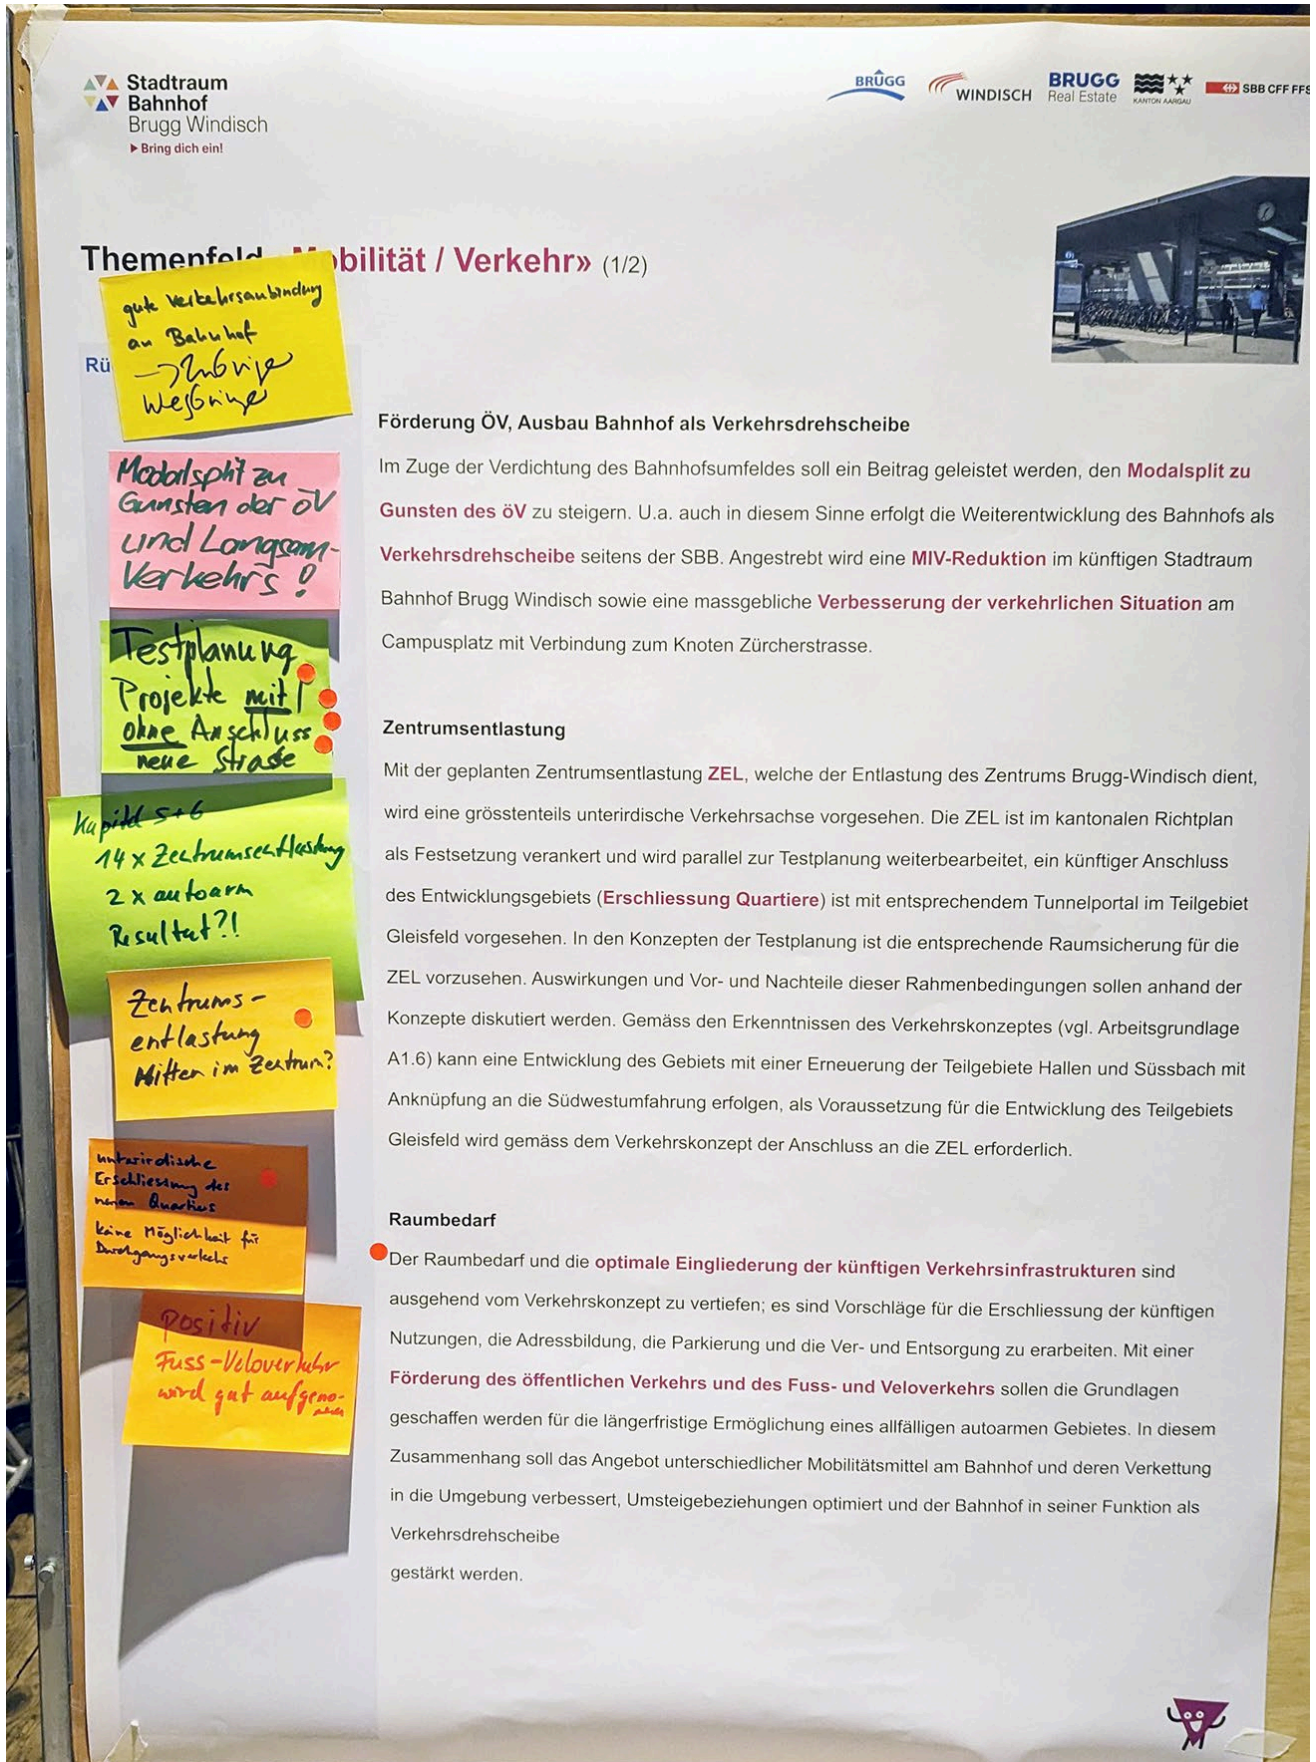 Stadtraum
Bahnhof
Brugg Windisch
Bring dich ein!
BRUGG
WINDISCH
BRUGG
Real Estate
KANTON AARGAU
SBB CFF FFS
Themenfeld «Mobilität / Verkehr» (1/2)
Rü
gute Verkehrsanbindung
an Bahnhof
Modalsplit zu
Gunsten der öV
und Langsam-
Verkehrs!
Testplanung
Projekte mit /
ohne Anschluss
neue Straße
Kapitel 5+6
14 x Zentrumsentlastung
2 x autoarm
Resultat?!
Zentrums-
entlastung
Mitten im Zentrum?
unterirdische
Erschliessung des
neuen Quartiers
keine Möglichkeit für
Durchgangsverkehr
positiv
Fuss-Veloverkehr
wird gut aufgeno-
mmen
Förderung ÖV, Ausbau Bahnhof als Verkehrsdrehscheibe
Im Zuge der Verdichtung des Bahnhofsumfeldes soll ein Beitrag geleistet werden, den Modalsplit zu
Gunsten des öV zu steigern. U.a. auch in diesem Sinne erfolgt die Weiterentwicklung des Bahnhofs als
Verkehrsdrehscheibe seitens der SBB. Angestrebt wird eine MIV-Reduktion im künftigen Stadtraum
Bahnhof Brugg Windisch sowie eine massgebliche Verbesserung der verkehrlichen Situation am
Campusplatz mit Verbindung zum Knoten Zürcherstrasse.
Zentrumsentlastung
Mit der geplanten Zentrumsentlastung ZEL, welche der Entlastung des Zentrums Brugg-Windisch dient,
wird eine grösstenteils unterirdische Verkehrsachse vorgesehen. Die ZEL ist im kantonalen Richtplan
als Festsetzung verankert und wird parallel zur Testplanung weiterbearbeitet, ein künftiger Anschluss
des Entwicklungsgebiets (Erschliessung Quartiere) ist mit entsprechendem Tunnelportal im Teilgebiet
Gleisfeld vorgesehen. In den Konzepten der Testplanung ist die entsprechende Raumsicherung für die
ZEL vorzusehen. Auswirkungen und Vor- und Nachteile dieser Rahmenbedingungen sollen anhand der
Konzepte diskutiert werden. Gemäss den Erkenntnissen des Verkehrskonzeptes (vgl. Arbeitsgrundlage
A1.6) kann eine Entwicklung des Gebiets mit einer Erneuerung der Teilgebiete Hallen und Süssbach mit
Anknüpfung an die Südwestumfahrung erfolgen, als Voraussetzung für die Entwicklung des Teilgebiets
Gleisfeld wird gemäss dem Verkehrskonzept der Anschluss an die ZEL erforderlich.
Raumbedarf
Der Raumbedarf und die optimale Eingliederung der künftigen Verkehrsinfrastrukturen sind
ausgehend vom Verkehrskonzept zu vertiefen; es sind Vorschläge für die Erschliessung der künftigen
Nutzungen, die Adressbildung, die Parkierung und die Ver- und Entsorgung zu erarbeiten. Mit einer
Förderung des öffentlichen Verkehrs und des Fuss- und Veloverkehrs sollen die Grundlagen
geschaffen werden für die längerfristige Ermöglichung eines allfälligen autoarmen Gebietes. In diesem
Zusammenhang soll das Angebot unterschiedlicher Mobilitätsmittel am Bahnhof und deren Verkettung
in die Umgebung verbessert, Umsteigebeziehungen optimiert und der Bahnhof in seiner Funktion als
Verkehrsdrehscheibe
gestärkt werden.